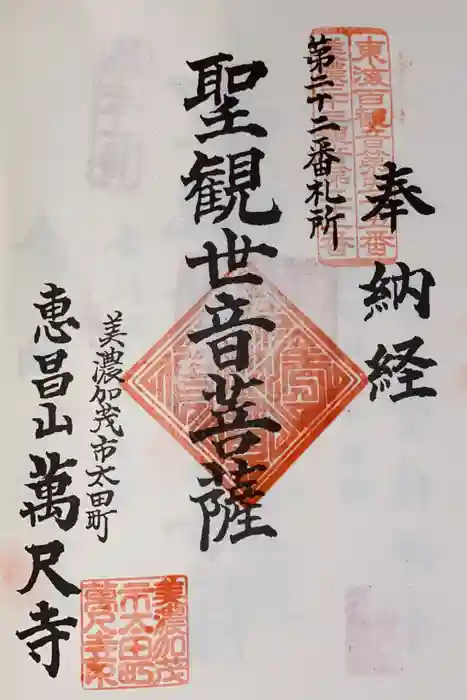 奉納経
東海百観音第五十五番
美濃三十三観音第二十二番
第二十二番札所
聖観世音菩薩
美濃加茂市太田町
惠昌山萬尺寺
美濃加茂
市太田町
萬尺寺印